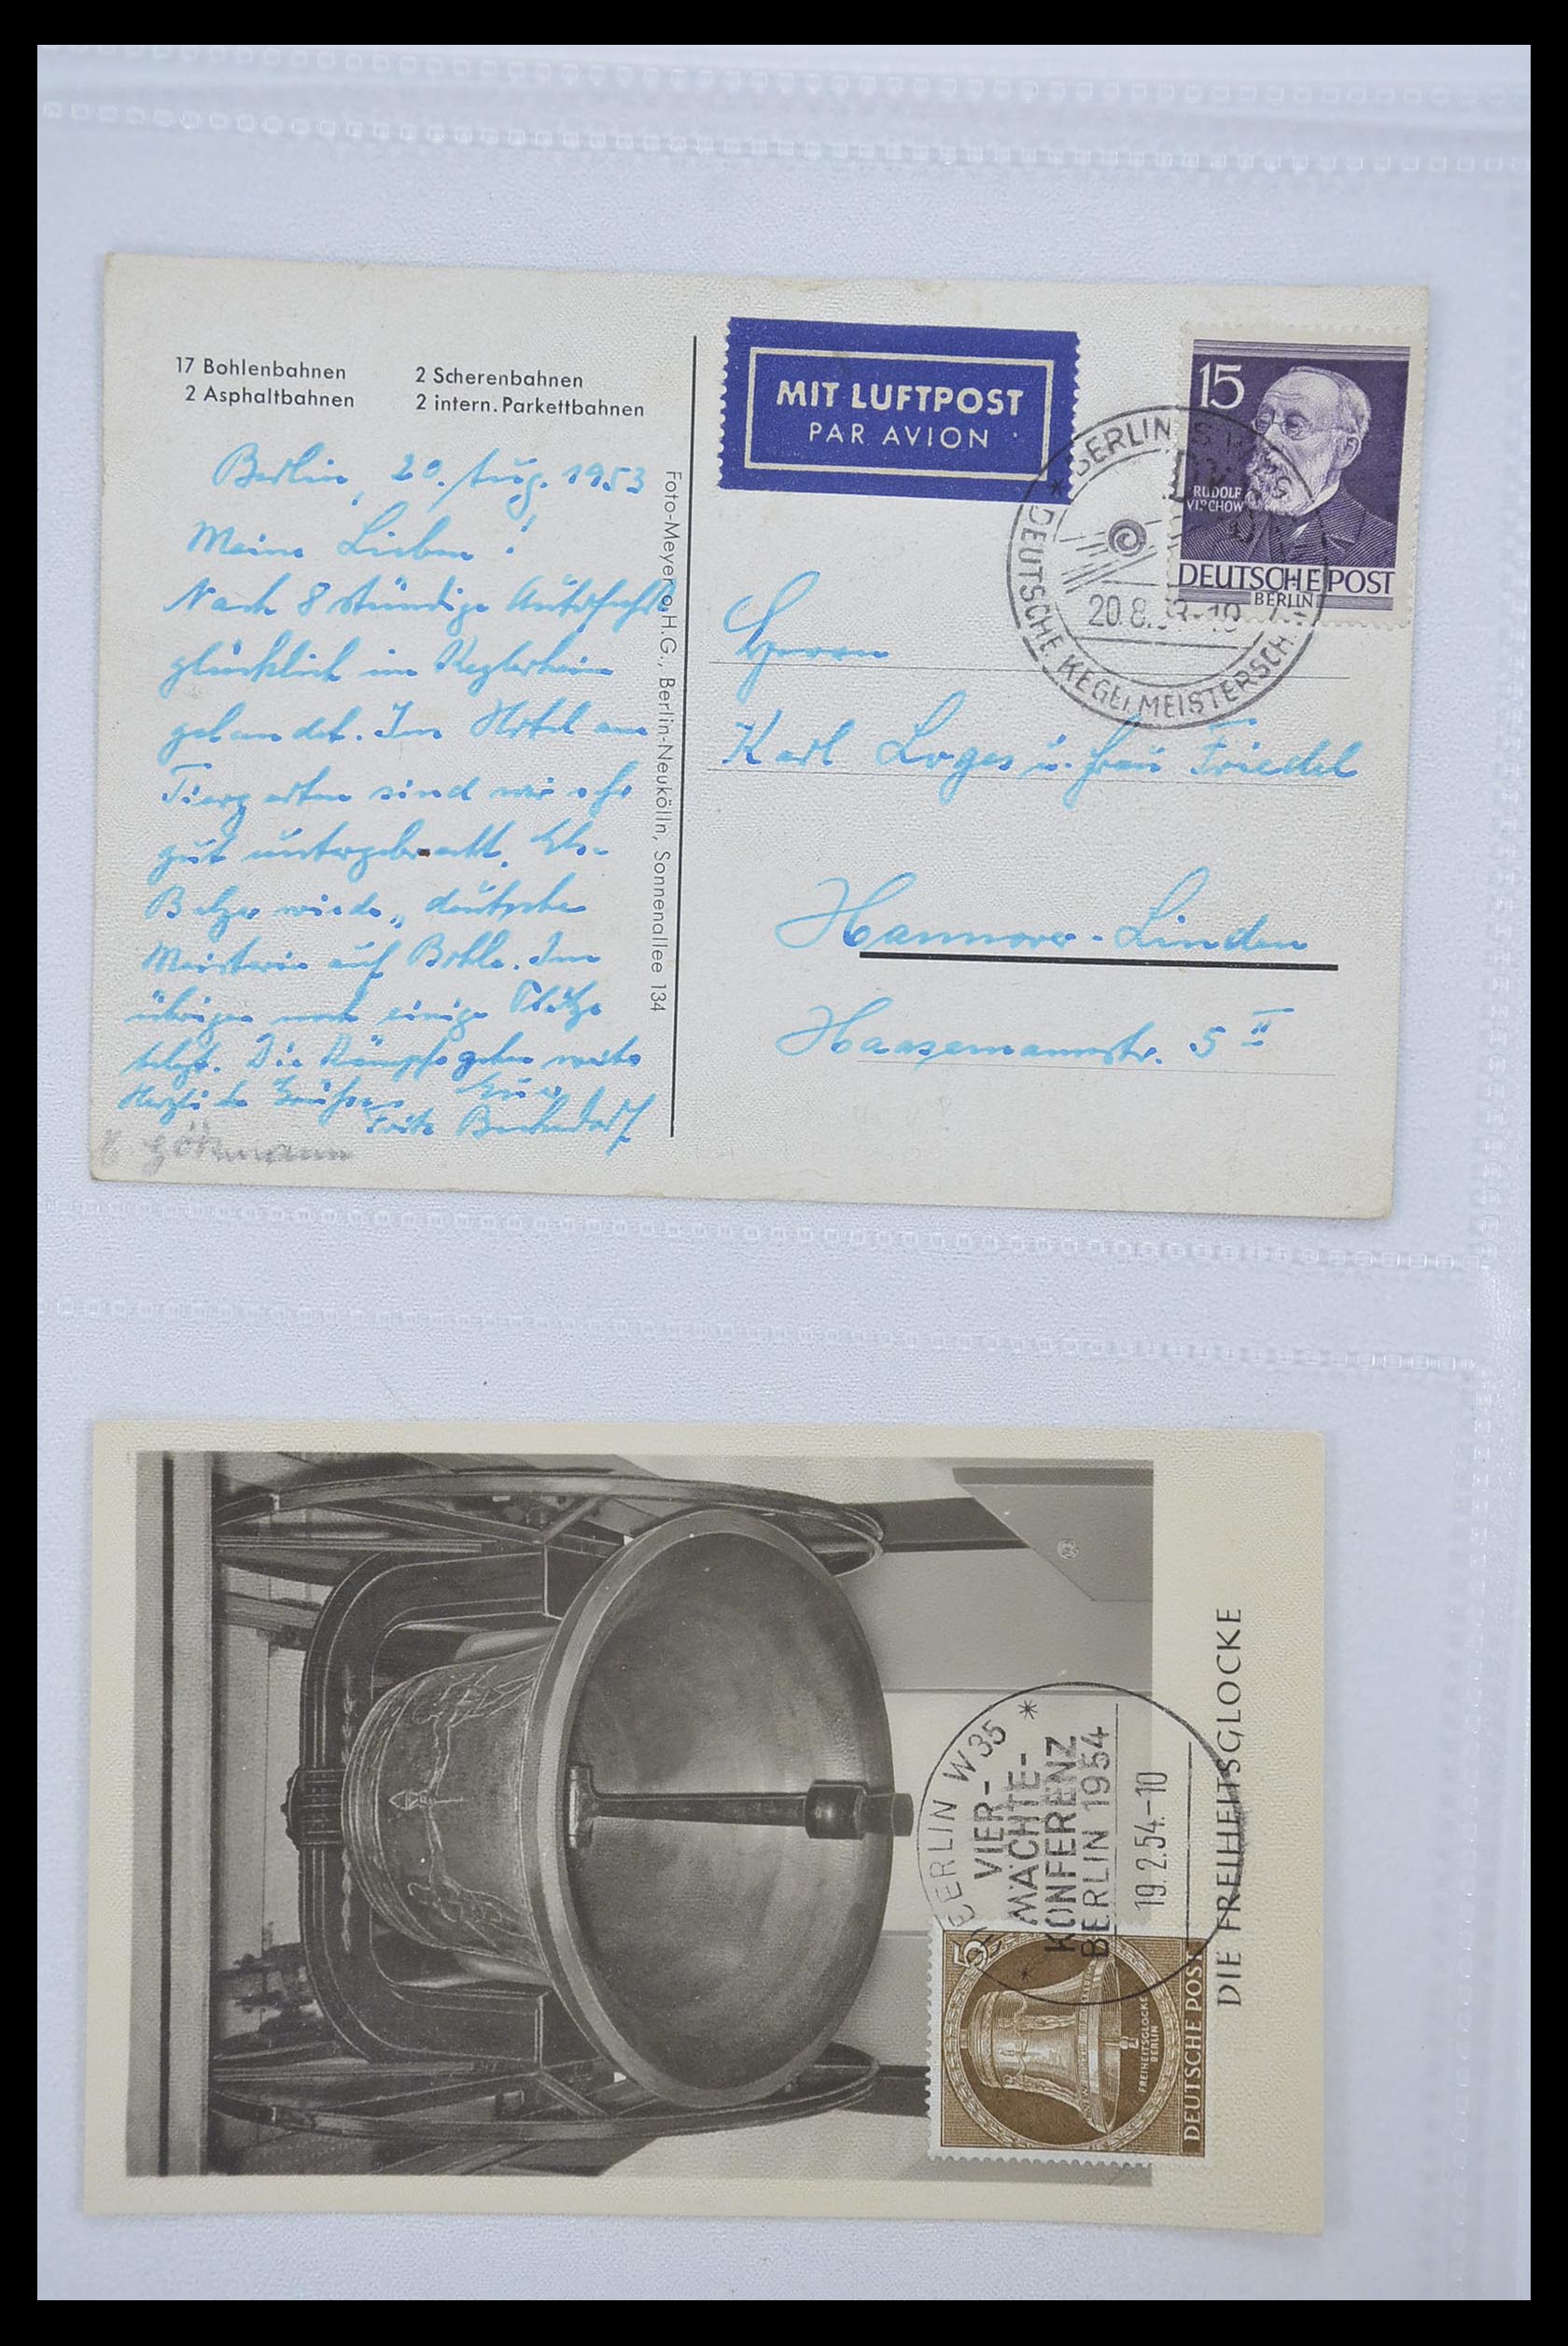 17 Bohlenbahnen
2 Asphaltbahnen
2 Scherenbahnen
2 intern. Parkettbahnen
Berlin, 20. Aug. 1953
Meine Lieben!
Nach 8 stündige Autofahrt
glücklich im Keglerheim
gelandet. Im Hotel am
Tiergarten sind wir sehr
gut untergebracht.
wieder deutsche
Meisterin auf Bohle. Im
übrigen noch einige Plätze
belegt. Die Kämpfe gehen weiter
Herzliche Grüsse Euer
Fritz
Foto-Meyer o.H.G., Berlin-Neukölln, Sonnenallee 134
MIT LUFTPOST
PAR AVION
15
RUDOLF
VIRCHOW
DEUTSCHE POST
BERLIN
BERLIN
DEUTSCHE KEGELMEISTERSCH
20.8.
Herrn
Karl Loges u. Frau Friedel
Hannover-Linden
Haasemannstr. 5 II
BERLIN W 35
VIER-
MÄCHTE-
KONFERENZ
BERLIN 1954
19.2.54.-10
5
FREIHEITSGLOCKE
BERLIN
DEUTSCHE POST
DIE FREIHEITSGLOCKE